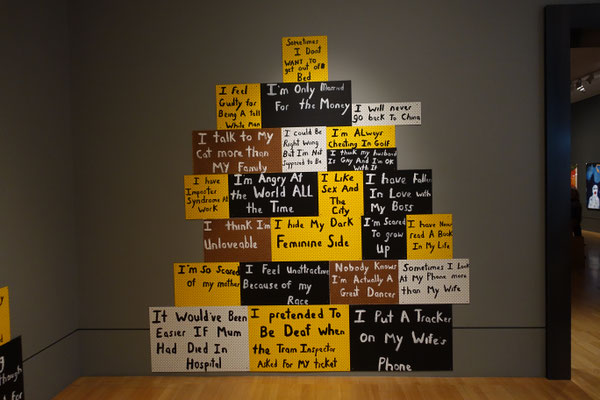 Sometimes
I Dont
WANT To
get out of
Bed
I feel
Guilty for
Being A tall
White Man
I'm Only Married
For the Money
I will never
go back To China
I talk to My
Cat more than
My Family
I could be
Right Wing
But I'm Not
Supposed to Be
I'm Always
Cheating In Golf
I think my husband
Is Gay And I'm OK
With It
I have
Imposter
Syndrome At
Work
I'm Angry At
the World All
the Time
I Like
Sex And
The
City
I have Fallen
In Love with
My Boss
I think I'm
Unloveable
I hide My Dark
Feminine Side
I'm Scared
To grow
up
I have Never
read A Book
In My Life
I'm So Scared
of my mother
I feel Unattractive
Because of my
Race
Nobody Knows
I'm Actually A
Great Dancer
Sometimes I Look
At My Phone more
than My Wife
It Would've Been
Easier IF Mum
Had Died In
Hospital
I pretended To
Be Deaf When
the Tram Inspector
Asked For My ticket
I Put A Tracker
on My Wife's
Phone